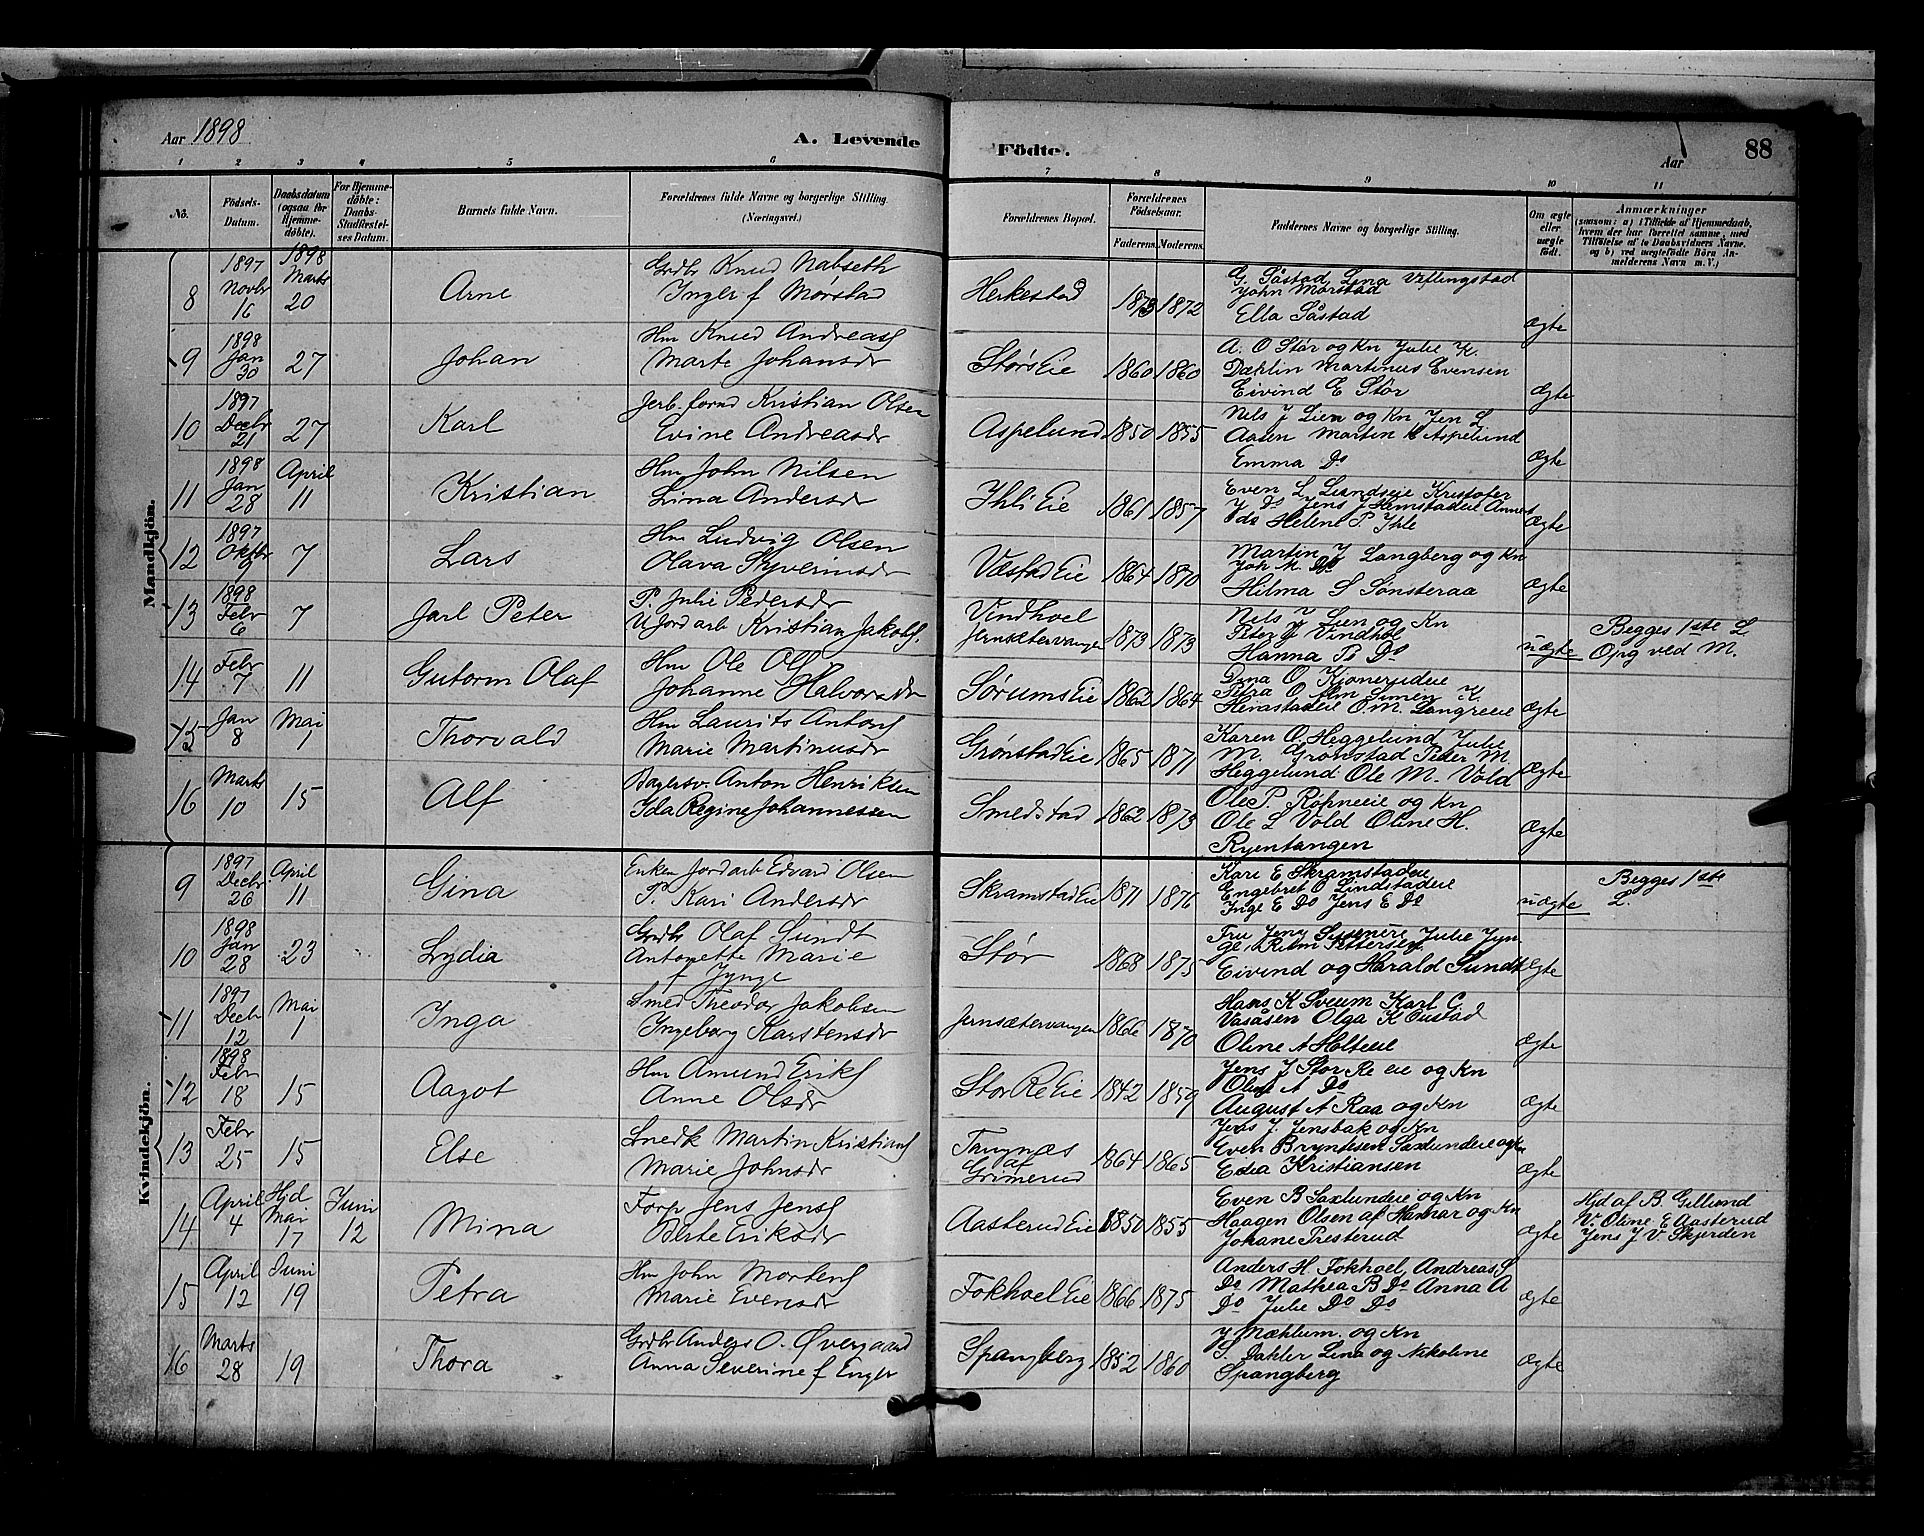 Aar 1898
A. Levende
Födte.
Aar
88
1 2 3 4 5 6 7 8 9 10 11
No.
Födsels-
Datum.
Daabsdatum
(ogsaa for
Hjemme-
döbte).
For Hjemme-
döbte:
Daabs-
Stadfæstel-
ses Datum.
Barnets fulde Navn.
Forældrenes fulde Navne og borgerlige Stilling
(Næringsvei.)
Forældrenes Bopæl.
Forældrenes
Födselsaar.
Faderens. Moderens.
Faddernes Navne og borgerlige Stilling.
Om ægte
eller
uægte
födt.
Anmærkninger
(saasom: a) i Tilfælde af Hjemmedaab,
hvem der har forrettet samme, med
Tilföielse af to Daabsvidners Navne,
og b) ved uægtefödte Börn An-
melderens Navn m. V.)
Mandkjön.
8
1897
Novbr
16
1898
Marts
20
Arne
Grdbr Knud Nabseth
Inger f Mørstad
Herkestad
1873 1872
G. Såstad Lina Veflingstad
John Mørstad
Ella Såstad
Ægte
9
1898
Jan
30
27
Johan
Hm Knud Andreasf
Marte Johansdr
StørsEie
1860 1860
A. O Stør og Kn Julie K.
Dæhlin Martinus Evensen
Eivind E Stør
Ægte
10
1897
Decbr
21
27
Karl
Jerb. form Kristian Olsen
Evine Andreasdr
Aspelund
1850 1855
Nils J Lien og Kn Jen L
Aasen Martin K Aspelund
Emma Do
Ægte
11
1898
Jan
28
April
11
Kristian
Hm John Nilsen
Lina Andersdr
IhliEie
1861 1857
Even L Lundseie Kristofer
J Do Jens J Hemstadeie Anne
Helene P Ihle
Ægte
12
1897
Oktbr
9
7
Lars
Hm Ludvig Olsen
Olava Syversdr
VæstadEie
1864 1870
Martin J Langberg og Kn
Joh M Do
Hilma S Sønsteraa
Ægte
13
1898
Febr
6
7
Jarl Peter
P. Julie Pedersdr
U Jordarb Kristian Jakobs.
Vindhoel
Jernsætervangen
1873 1873
Nils J Lien og Kn
Peter J Vindhol
Hanna B Do
uægte
Begges 1ste L
Opg ved M.
14
Febr
7
11
Gutorm Olaf
Hm Ole Olf
Johanne Halvorsdr
SørumsEie
1862 1864
Dina O Kjonerudeie
Petra O Hm Simen K
Hemstadeie O.M. Langreeie
Ægte
15
Jan
8
Mai
1
Thorvald
Hm Laurits Antonf
Marie Martinusdr
GrønstadEie
1865 1871
Karen O. Heggelund Julie
M. Grønstad Peder M.
Heggelund Ole M. Vold
Ægte
16
Marts
10
15
Alf
Bagersv. Anton Henriksen
Ida Ragine Johannessen
Smedstad
1862 1873
Ole P. Røhneeie og Kn
Ole L Vold Oline H.
Ryentangen
Ægte
Kvindekjön.
9
1897
Decbr
26
April
11
Gina
Enkem Jordarb Edvard Olsen
P. Kari Andersdr
SkramstadEie
1871 1876
Kari E Skramstadeie
Engebret O Lindstadeie
Inge E Do Jens E Do
uægte
Begges 1ste
L.
10
1898
Jan
28
23
Lydia
Grdbr Olaf Sundt
Antonette Marie
f Jynge
Stør
1868 1875
Fru Jeny Julie Jyn
ge, Pettersen
Eivind og Harald Sundt
Ægte
11
1897
Decbr
12
Mai
1
Inga
Smed Theodor Jakobsen
Ingeborg Karstensdr
Jernsætervangen
1866 1870
Hans K Sveum Karl C
Vasåsen Olga K Oustad
Oline A Holteeie
Ægte
12
1898
Febr
18
15
Aagot
Hm Amund Erikf
Anne Olsdr
Stor ReEie
1842 1859
Jens J Stor Re eie og Kn
Oluf A Do
August A Raa og Kn
Ægte
13
Febr
25
15
Else
Snedk Martin Kristianf
Marie Johnsdr
Tangnæs
af
Grimerud
1864 1865
Jens J. Jensbak og Kn
Even Bryntesen Saxlundeie og Kn
Edea Kristiansen
Ægte
14
April
4
Hjd
Mai
17
Juni
12
Mina
Forp Jens Jensf
Berte Eriksdr
AasterudEie
1850 1855
Even B Saxlundeie og Kn
Haagen Olsen af Hamar og Kn
Johane Presterud
Ægte
Hjd af B. Gillund
V. Oline E Aasterud
Jens J V Skjerden
15
April
12
Juni
19
Petra
Hm John Mortenf
Marie Evensdr
FokhoelEie
1866 1875
Anders H Fokhoel, Andreas S
Do Mathea B Do Anna A
Do Julie Do Do
Ægte
16
Marts
28
19
Thora
Grdbr Anders O. Øvergaard
Anna Severine f Enger
Spangberg
1852 1860
J Mæhlum. og Kn
S. Dahler Lina og Nikoline
Spangberg
Ægte